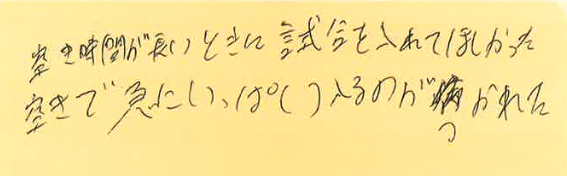 空き時間が長いときに試合を入れてほしかった
空きで急にいっぱい入るのがつかれた